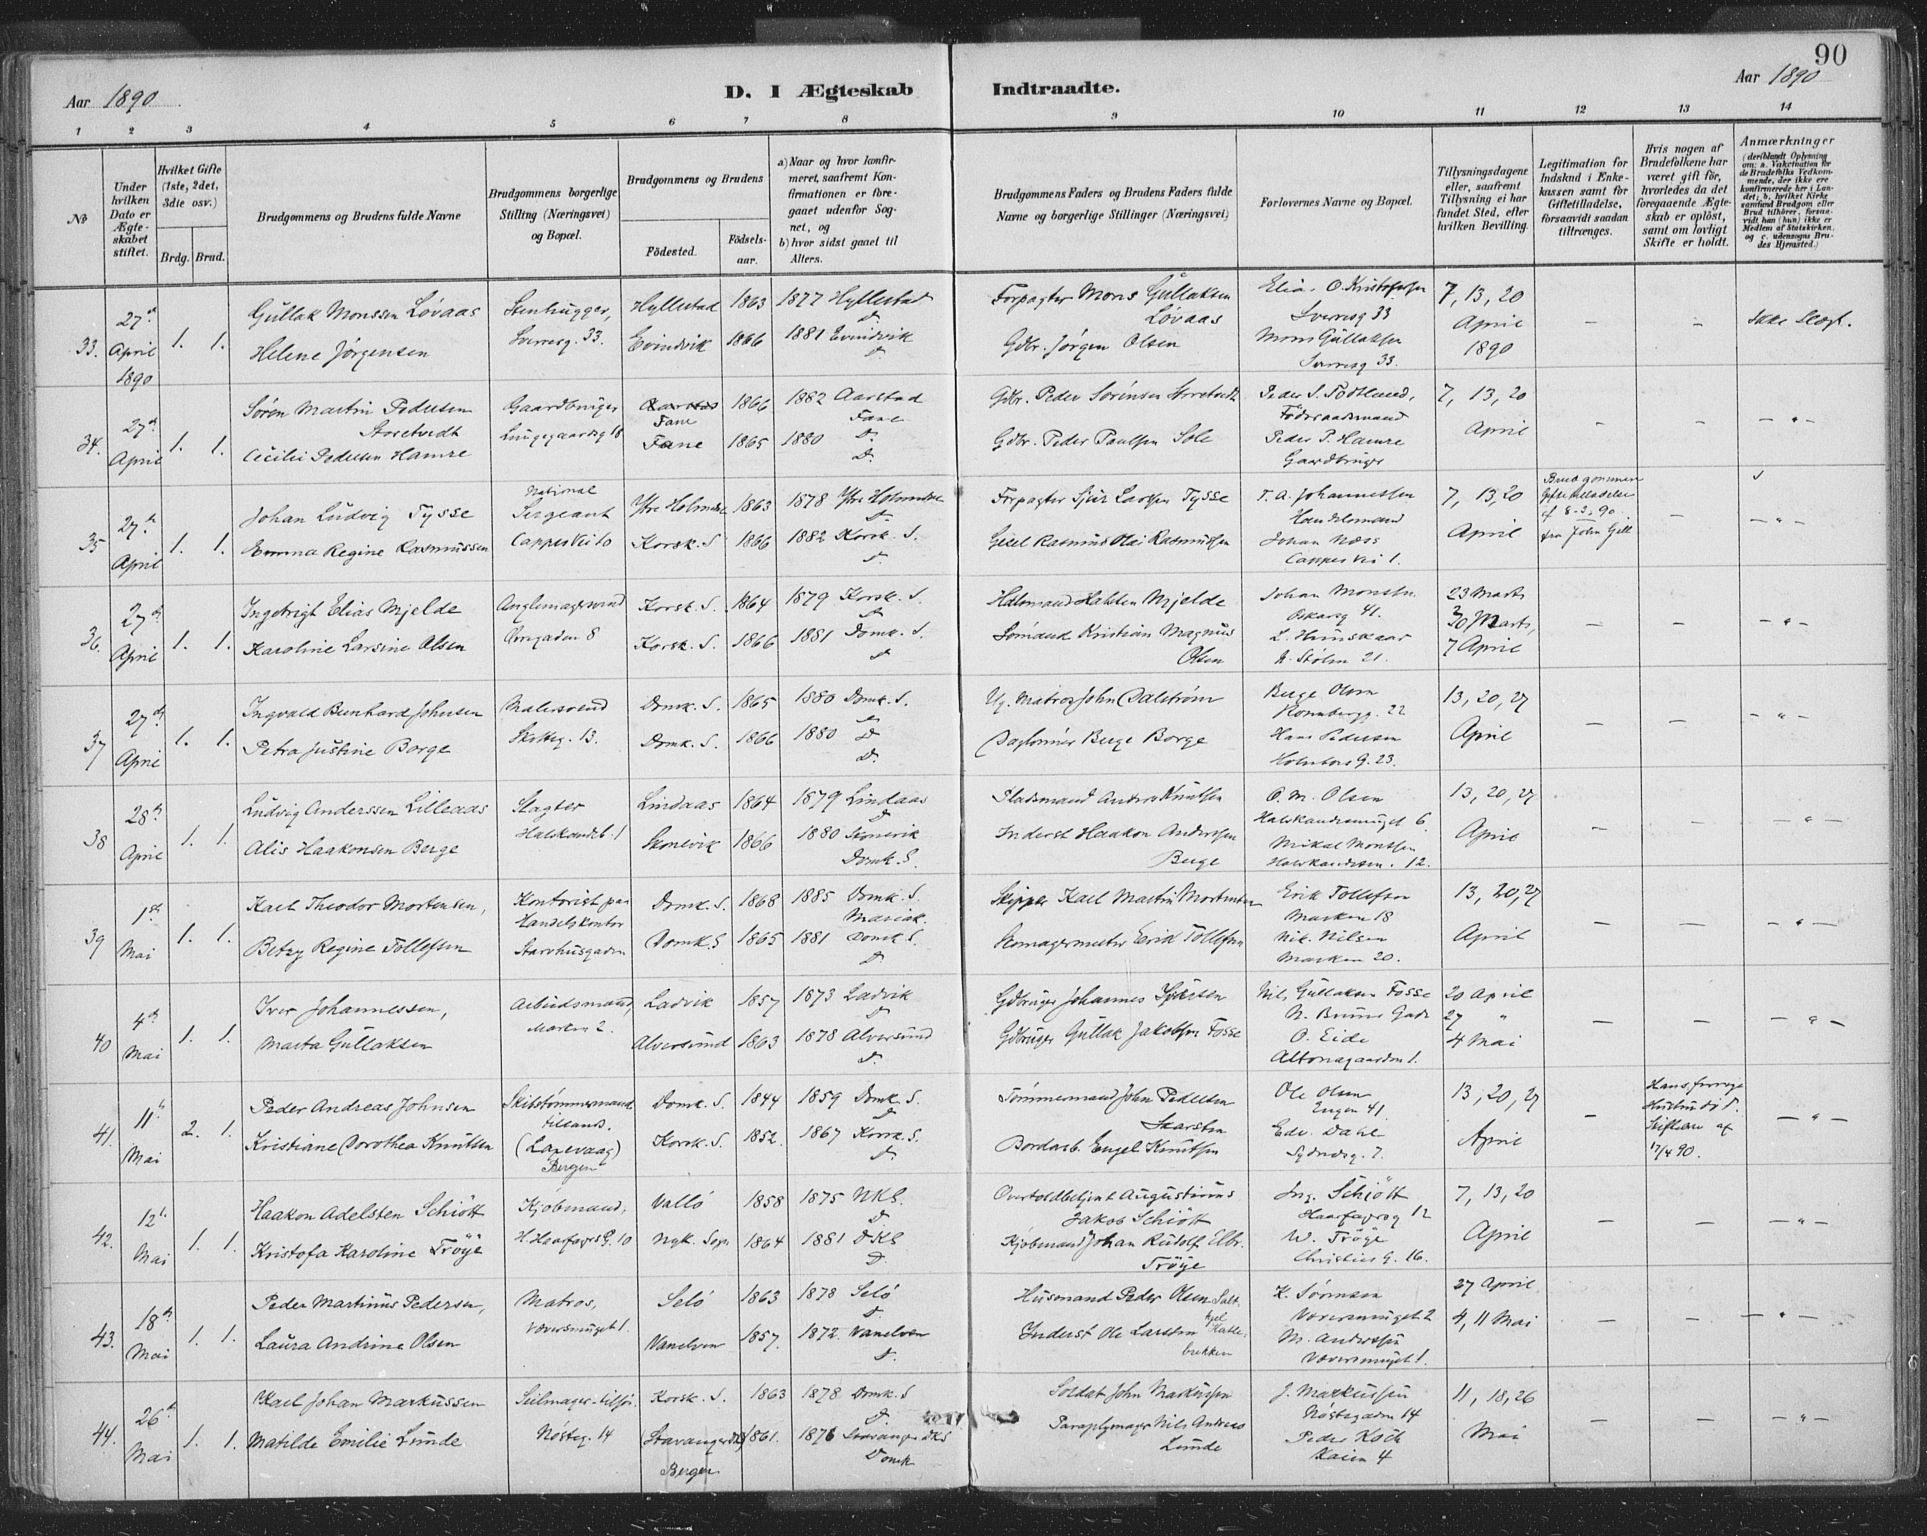 90
Aar 1890
D. I Ægteskab
Indtraadte.
Aar 1890
1 2 3 4 5 6 7 8 9 10 11 12 13 14
No
Under hvilken Dato er Ægteskabet stiftet.
Hvilket Gifte (1ste, 2det, 3die osv.)
Brdg. Brud.
Brudgommens og Brudens fulde Navne
Brudgommens borgerlige Stilling (Næringsvei) og Bopæl.
Brudgommens og Brudens
Födested.
Födselsaar.
a) Naar og hvor konfirmeret, saafremt Konfirmationen er foregaaet udenfor Sognet, og
b) hvor sidst gaaet til Alters.
Brudgommens Faders og Brudens Faders fulde Navne og borgerlige Stillinger (Næringsvei)
Forlovernes Navne og Bopæl.
Tillysningsdagene eller, saafremt Tillysning ei har fundet Sted, efter hvilken Bevilling.
Legitimation for Indskud i Enkekassen samt for Giftetilladelse, forsaavidt saadan tiltrænges.
Hvis nogen af Brudefolkene har været gift før, hvorledes da det foregaaende Ægteskab er opløst, samt om lovligt Skifte er holdt.
Anmærkninger
(deriblandt Oplysning om: a. Vakcination for de Brudefolks Vedkommende, der ikke ere konfirmerede her i Landet; b. hvilket Kirkesamfund Brudgom eller Brud tilhörer, forsaavidt han (hun) ikke er Medlem af Statskirken, og c. udensogns Brudes Hjemsted.)
33. 27de April 1890 1. 1.
Gullak Monssen Løvaas Stenhugger, Hyllestad 1863 1877 Hyllestad D. Forpagter Mons Gullaksen Løvaas Elia. O. Kristofersen Sverresg 33 7, 13, 20 April 1890 — — Ikke Slægt.
Helene Jørgensen Sverresg. 33. Evindvik 1866 1881 Evindvik D. Gdbr. Jørgen Olsen Mons Gullaksen Sverresg 33.
34. 27de April 1. 1.
Søren Martin Pedersen Storetvedt Gaardbruger Fane 1866 1882 Aarstad Fane Gdbr. Peder Sørensen Storetvedt Peder S. Fodtland, Föderaadsmand 7, 13, 20 April — — — " —
Cecilie Pedersen Hamre Lungegaardsg 18 Fane 1865 1880 D. D. Gdbr. Peder Paulsen Sole Peder P. Hamre Gaardbruger
35 27de April 1. 1.
Johan Ludvig Tysse National Sergeant Ytre Holmedal 1863 1878 Ytre Holmedal D. Forpagter Sjur Larsen Tysse T. A. Johannessen Handelsmand 7, 13, 20 April Brudgommen Giftetilladelse af 8-3, 90. fra John Gill — — " —
Emma Regine Rasmussen Cappes Vei 10 Korsk. S 1866 1882 Korsk. S. D. Johan Næss Cappes Vei 1.
36. 27de April 1. 1.
Ingebrigt Elias Mjelde Korsk. S. 1864 1879 Korsk. S. D. Halsten Mjelde Johan Monsen Oskarsg 41. 23 Marts 30 Marts, 7 April — — — " —
Karoline Larsine Olsen 8 Korsk. S. 1866 1881 Domk. S. D. Sømand Kristian Magnus Olsen L. Hunskaar N. Stølen 21.
37 27de April 1. 1.
Ingvald Bernhard Johnsen Malersvend Domk. S. 1865 1880 Domk. S. D. Ug. Matros John Dalstrøm Berge Olsen 22 13, 20, 27 April — — — " —
Petra Justine Borge Skotteg. 13. Domk. S. 1866 1880 D. D. Daglönner Berge Borge Hans Pedersen Holmbers G. 23.
38 28de April 1. 1.
Ludvig Anderssen Lilleaas Slagter Lindaas 1864 1879 Lindaas D. Pladsmand Anders Knutsen O. M. Olsen 6. 13, 20, 27 April — — — " —
Alis Haakonsen Berge 1 Skonevik 1866 1880 Skonevik Domk. S. Inderst Haakon Anderssen Berge Mikal Monssen 12.
39 1ste Mai 1. 1.
Karl Theodor Mortensen, Kontorist paa Handelskontor Domk. S. 1868 1885 Domk. S. Mariak. Skipper Karl Martin Mortensen Erik Tollefsen Marken 18 13, 20, 27 April — — — " —
Betzy Regine Tollefsen Starvhusgaden Domk. S 1865 1881 Domk S. D. Skomagermester Erik Tollefsen Nik. Nilsen Marken 20.
40 4de Mai 1. 1.
Iver Johannessen, Arbeidsmand, Ladvik 1857 1873 Ladvik D. Gdbruger Johannes Nils Gullaksen Fosse 20 April 27 " 4 Mai — — — " —
Marta Gullaksen Marken 2. Alversund 1863 1878 Alversund D. Gdbruger Gullak Jakobsen Fosse O. Eide Altonagaarden 1.
41. 11te Mai 2. 1.
Peder Andreas Johnsen Skibstømmermand, tillands. Domk. S. 1844 1859 Domk. S. D. Tömmermand John Pedersen Skarsten Ole Olsen Engen 41 13, 20, 27 April — Hans forrige Hustru död. Skiftebr. af 17/4 90. — " —
Kristiane Dorothea Knutsen (Laxevaag) Bergen Korsk. S. 1852. 1867 Korsk S. D. Bordarb. Engel Knutsen Edv. Dahl Sydnæsg. 7.
42. 12te Mai 1. 1.
Haakon Adelsten Schiött Kjøbmand, Vallö 1858 1875 NKS. D. Overtoldbetjent Augustinus Jakob Schiött Ing. Schiött Haarfagresg 12 7, 13, 20 April — — — " —
Kristofa Karoline Tröye H. Haarfagrs G. 10 Nyk. Sogn 1864 1881 DKS D. Kjøbmand Johan Rudolf Elbr. Tröye W. Tröye Christies G. 16.
43. 18de Mai 1. 1.
Peder Martinus Pedersen, Matros, Selö 1863 1878 Selö D. Husmand Peder Olsen K. Sørensen Væversmuget 2 27 April 4, 11 Mai — — — " —
Laura Andrine Olsen Væversmuget 1. Vanelven 1857. 1872. Vanelven D. Inderst Ole Larssen M. Anderssen Væversmuget 1.
44. 26de Mai 1. 1.
Karl Johan Markussen Seilmager, tilsjös. Korsk. S. 1863 1878 Domk. S D. Soldat John Markussen J. Markussen Nöstegaden 14 11, 18, 26 Mai — — — " —
Matilde Emilie Lunde Nösteg. 14 (Stavanger DK) Bergen 1861. 1876 Stavanger DKS Domk Paraplymager Nils Andreas Lunde Peder Koch Kaien 4